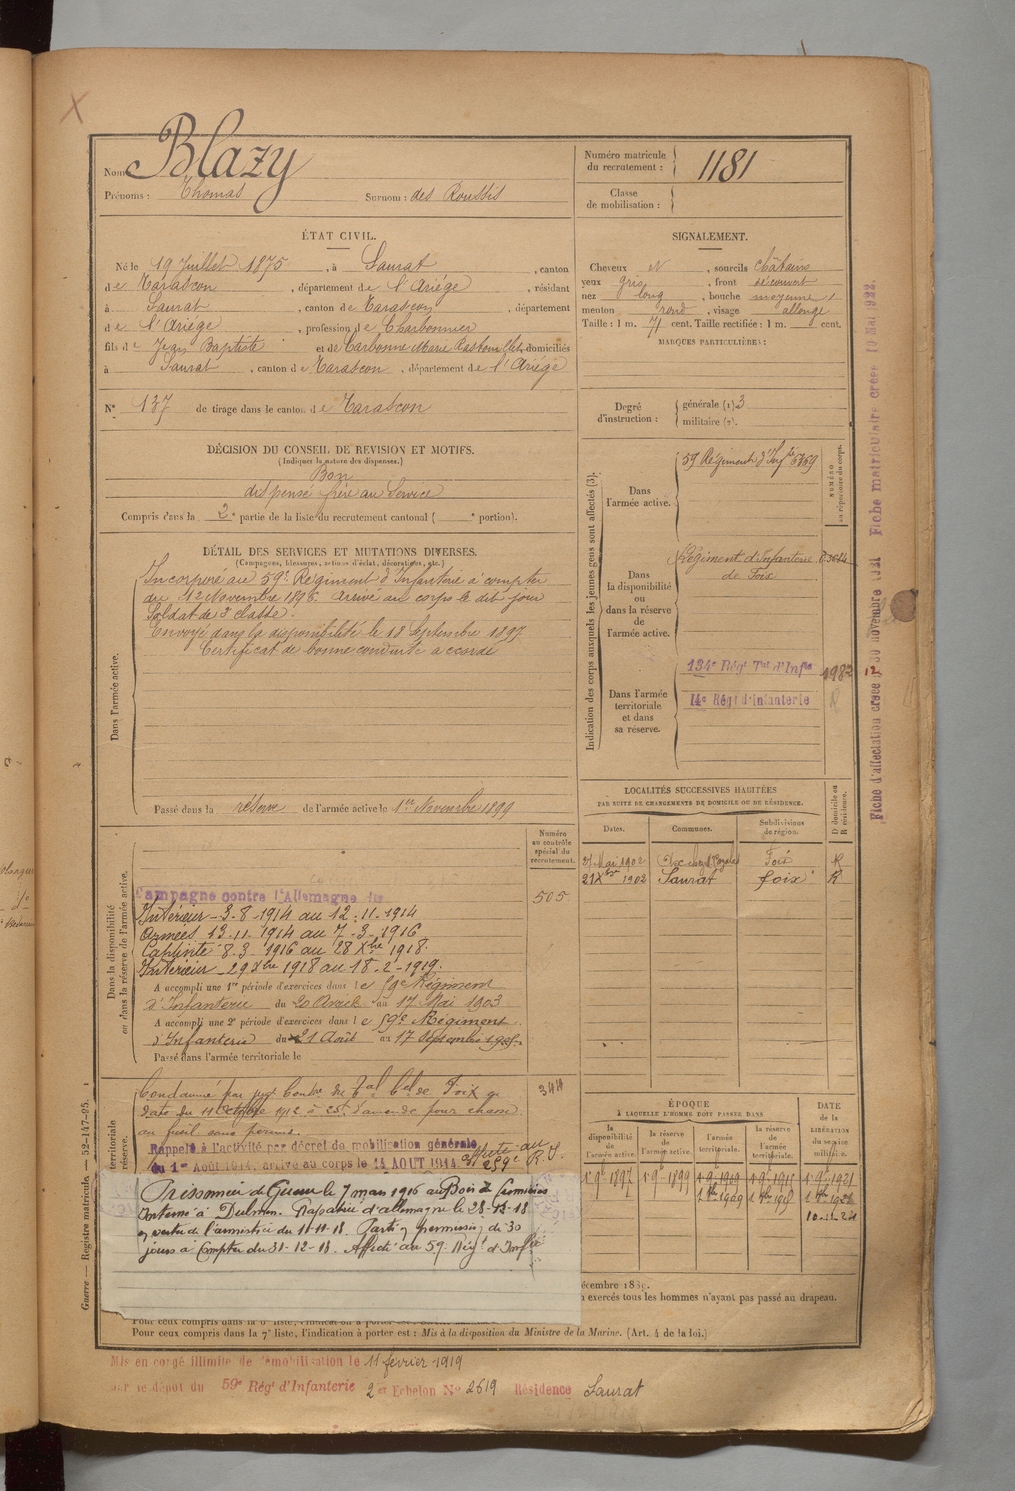 Nom : Blazy
Prénoms : Thomas Surnom : des Roussis
Numéro matricule du recrutement : 1181
Classe de mobilisation :
ÉTAT CIVIL.
Né le 19 Juillet 1875, à Saurat, canton
de Tarascon, département de l'Ariège, résidant
à Saurat, canton de Tarascon, département
de l'Ariège, profession de Charbonnier
fils de Jean Baptiste et de Carbonne Marie domiciliés
à Saurat, canton de Tarascon, département de l'Ariège
N° 137 de tirage dans le canton de Tarascon
SIGNALEMENT.
Cheveux et, sourcils châtains
yeux gris, front découvert
nez long, bouche moyenne
menton rond, visage allongé
Taille : 1 m. 71 cent. Taille rectifiée : 1 m. cent.
MARQUES PARTICULIÈRES :
Degré d'instruction : générale (1) 3
militaire (2).
DÉCISION DU CONSEIL DE REVISION ET MOTIFS.
(Indiquer la nature des dispenses.)
Bon
dispensé frère au Service
Compris dans la 2e partie de la liste du recrutement cantonal ( e portion).
DÉTAIL DES SERVICES ET MUTATIONS DIVERSES.
(Campagnes, blessures, actions d'éclat, décorations, etc.)
Dans l'armée active.
Incorporé au 59e Régiment d'Infanterie à compter
du 12 Novembre 1896. Arrivé au corps le dit jour
Soldat de 2e classe.
Envoyé dans la disponibilité le 18 Septembre 1897
Certificat de bonne conduite accordé
Passé dans la réserve de l'armée active le 1er Novembre 1899
Indication des corps auxquels les jeunes gens sont affectés (3).
NUMÉRO au répertoire du corps.
Dans l'armée active.
59 Régiment d'Infie
Dans la disponibilité ou dans la réserve de l'armée active.
Régiment d'Infanterie
de Foix
Dans l'armée territoriale et dans sa réserve.
134e Régt Tal d'Infie
14e Régt d'Infanterie
LOCALITÉS SUCCESSIVES HABITÉES
PAR SUITE DE CHANGEMENTS DE DOMICILE OU DE RÉSIDENCE.
Dates. Communes. Subdivisions de région. D domicile ou R résidence.
27 Mai 1902 Foix R
21 Xbre 1902 Saurat Foix R
Dans la disponibilité ou dans la réserve de l'armée active.
Numéro au contrôle spécial du recrutement.
505
Campagne contre l'Allemagne du
Intérieur - 3-8-1914 au 12-11-1914
Armées 13-11-1914 au 7-3-1916
Captivité 8-3-1916 au 28 Xbre 1918.
Intérieur - 29 Xbre 1918 au 18-2-1919.
A accompli une 1re période d'exercices dans le 59e Régiment
d'Infanterie du 20 Avril au 17 Mai 1903
A accompli une 2e période d'exercices dans le 59e Régiment
d'Infanterie du 21 Août au 17 Septembre
Passé dans l'armée territoriale le
344
Condamné par jugt Contre du Tal Cel de Foix en
date du 11 Octobre 1912 à 25f d'amende pour chasse
au fusil sans permis.
Rappelé à l'activité par décret de mobilisation générale
du 1er Août 1914, arrivé au corps le 14 AOUT 1914 affecté au 259e R.I.
Prisonnier de Guerre le 7 mars 1916 au Bois de
Interné à Dulmen. Rapatrié d'allemagne le 28-12-18
en vertu de l'armistice du 11-11-18. Parti en permission de 30
jours à Compter du 31-12-18. Affecté au 59 Régt d'Infie
ÉPOQUE
À LAQUELLE L'HOMME DOIT PASSER DANS
la disponibilité de l'armée active. la réserve de l'armée active. l'armée territoriale. la réserve de l'armée territoriale.
DATE de la LIBÉRATION du service militaire.
exercés tous les hommes n'ayant pas passé au drapeau.
Pour ceux compris dans la 7e liste, l'indication à porter est : Mis à la disposition du Ministre de la Marine. (Art. 4 de la loi.)
Mis en congé illimité de démobilisation le 11 février 1919
par le dépôt du 59e Régt d'Infanterie 2e Echelon N° 2619 Résidence Saurat
Guerre — Registre matricule. — 52-147-95.
Fiche d'affectation créée 30 novembre 1921 Fiche matriculaire créée 10 Mai 1922.